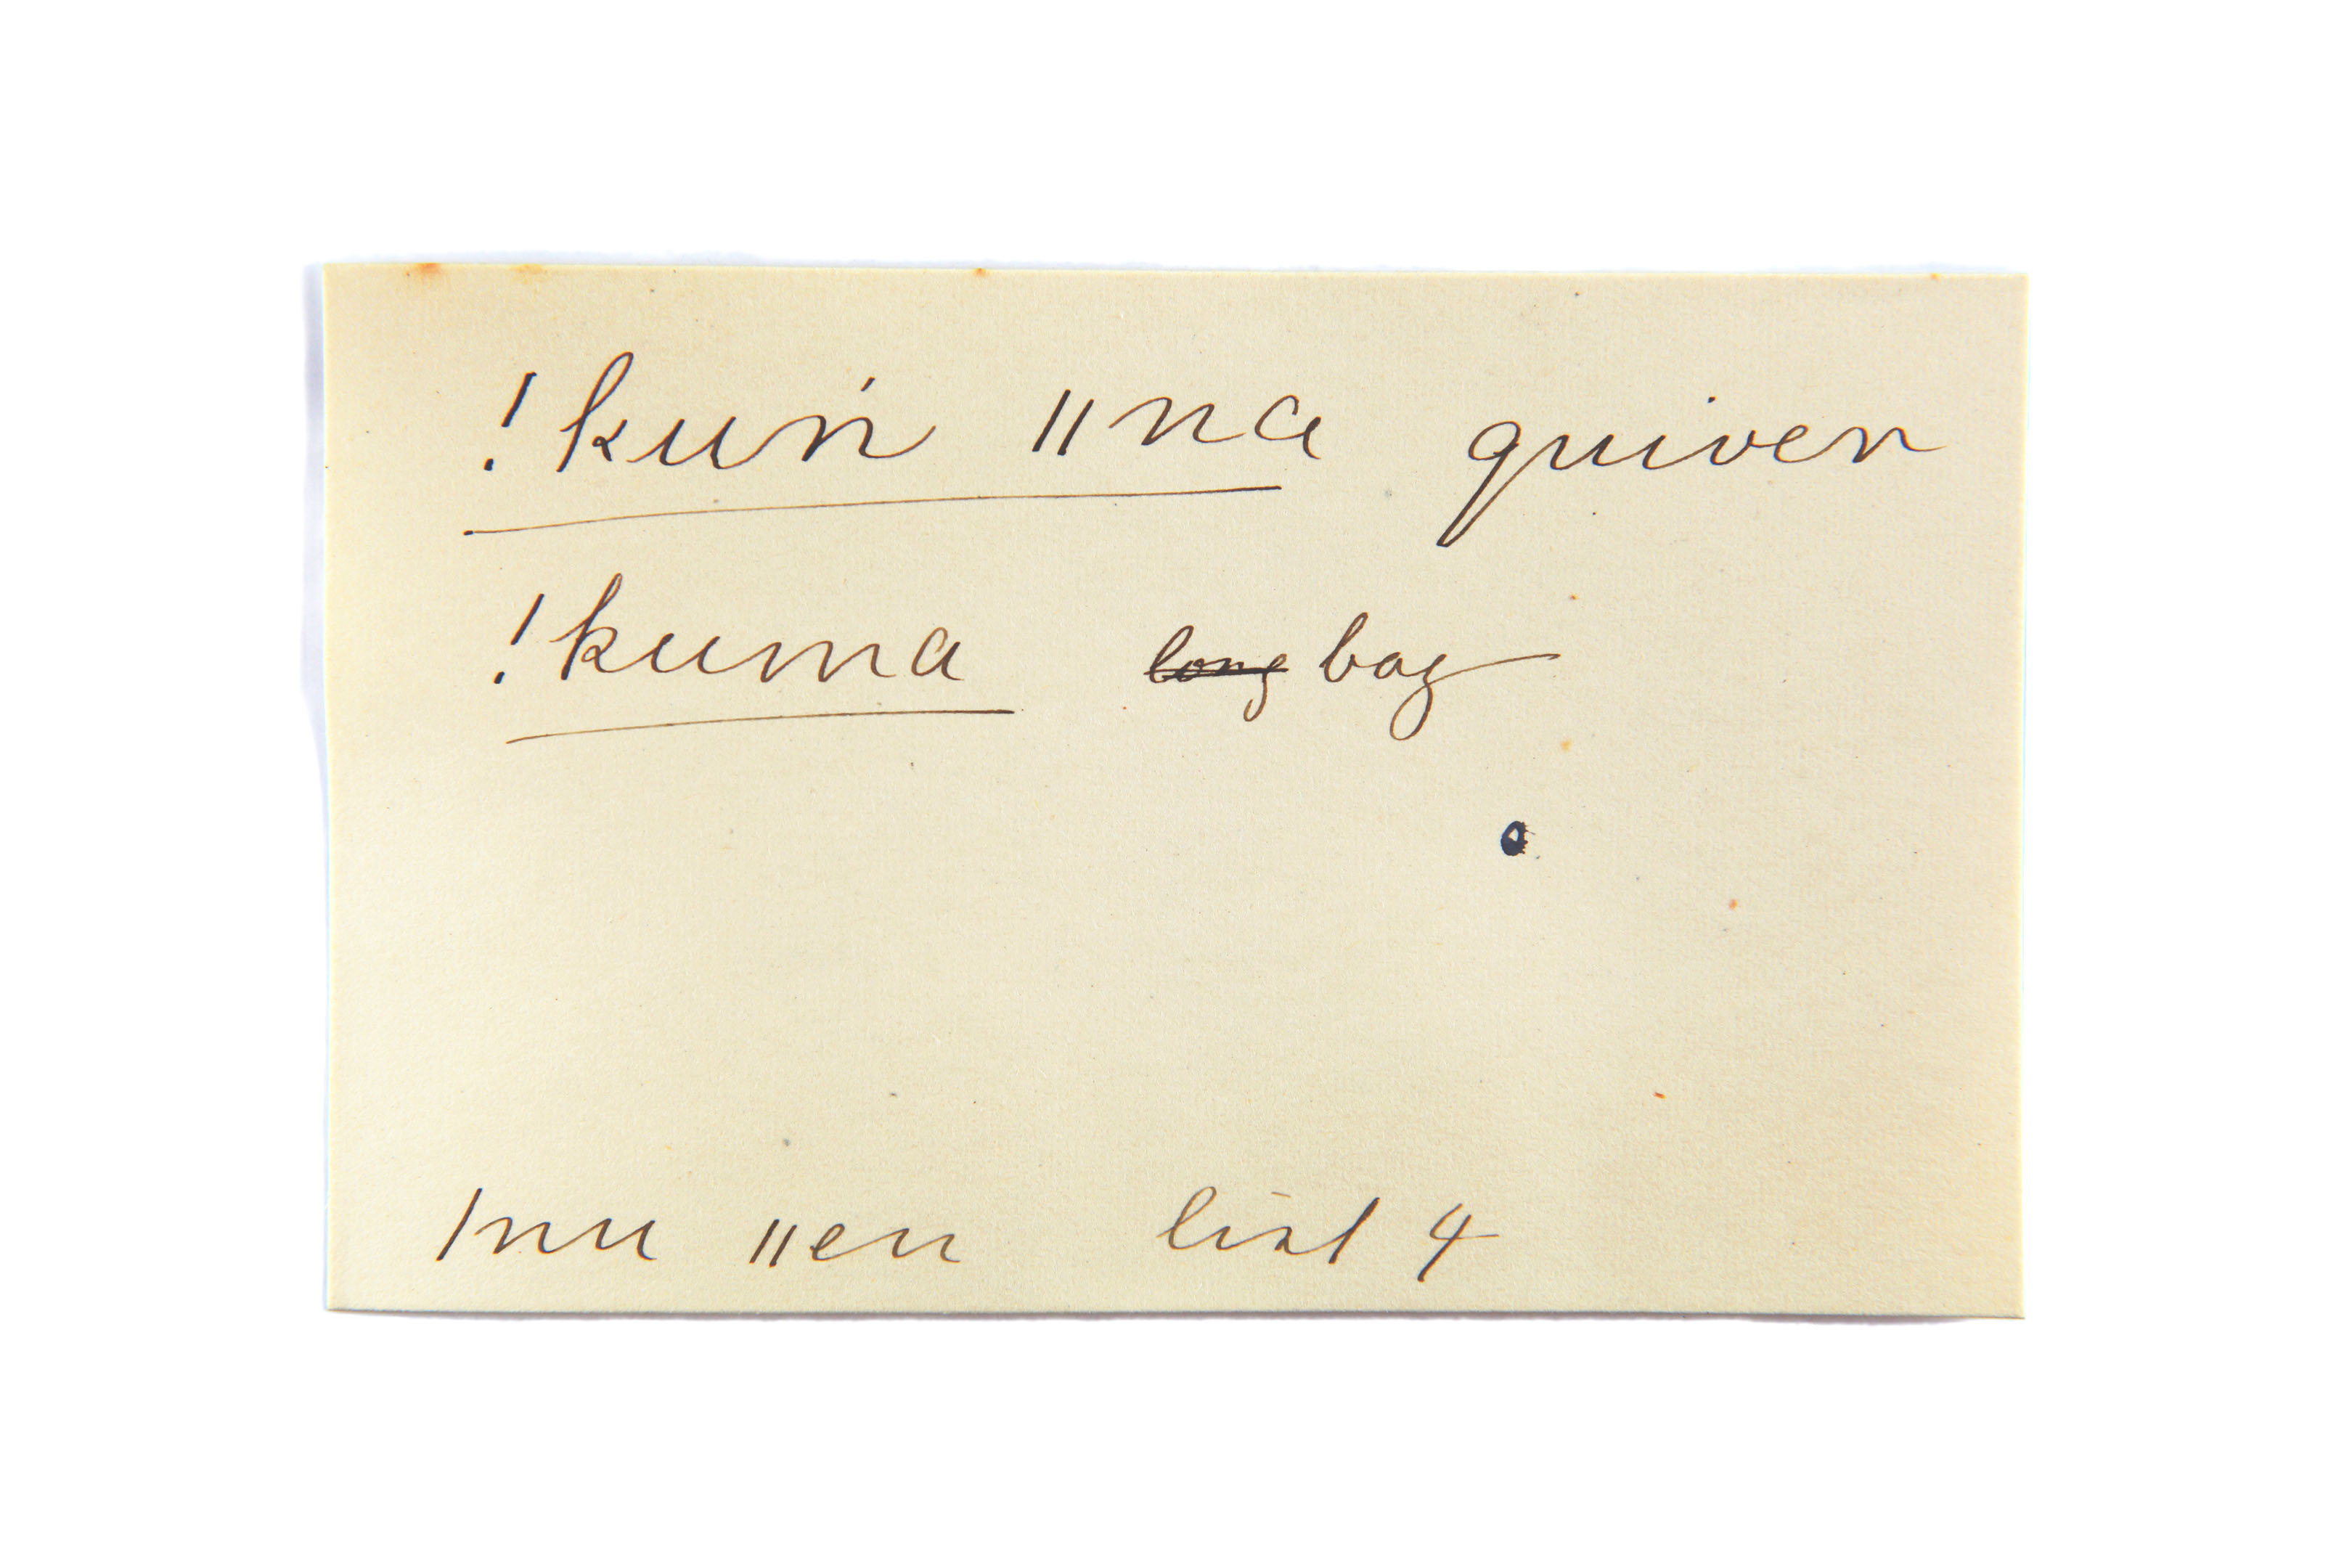 !kuṅ ǁna quiver
!kuma long bag
ǀnu ǁen list 4